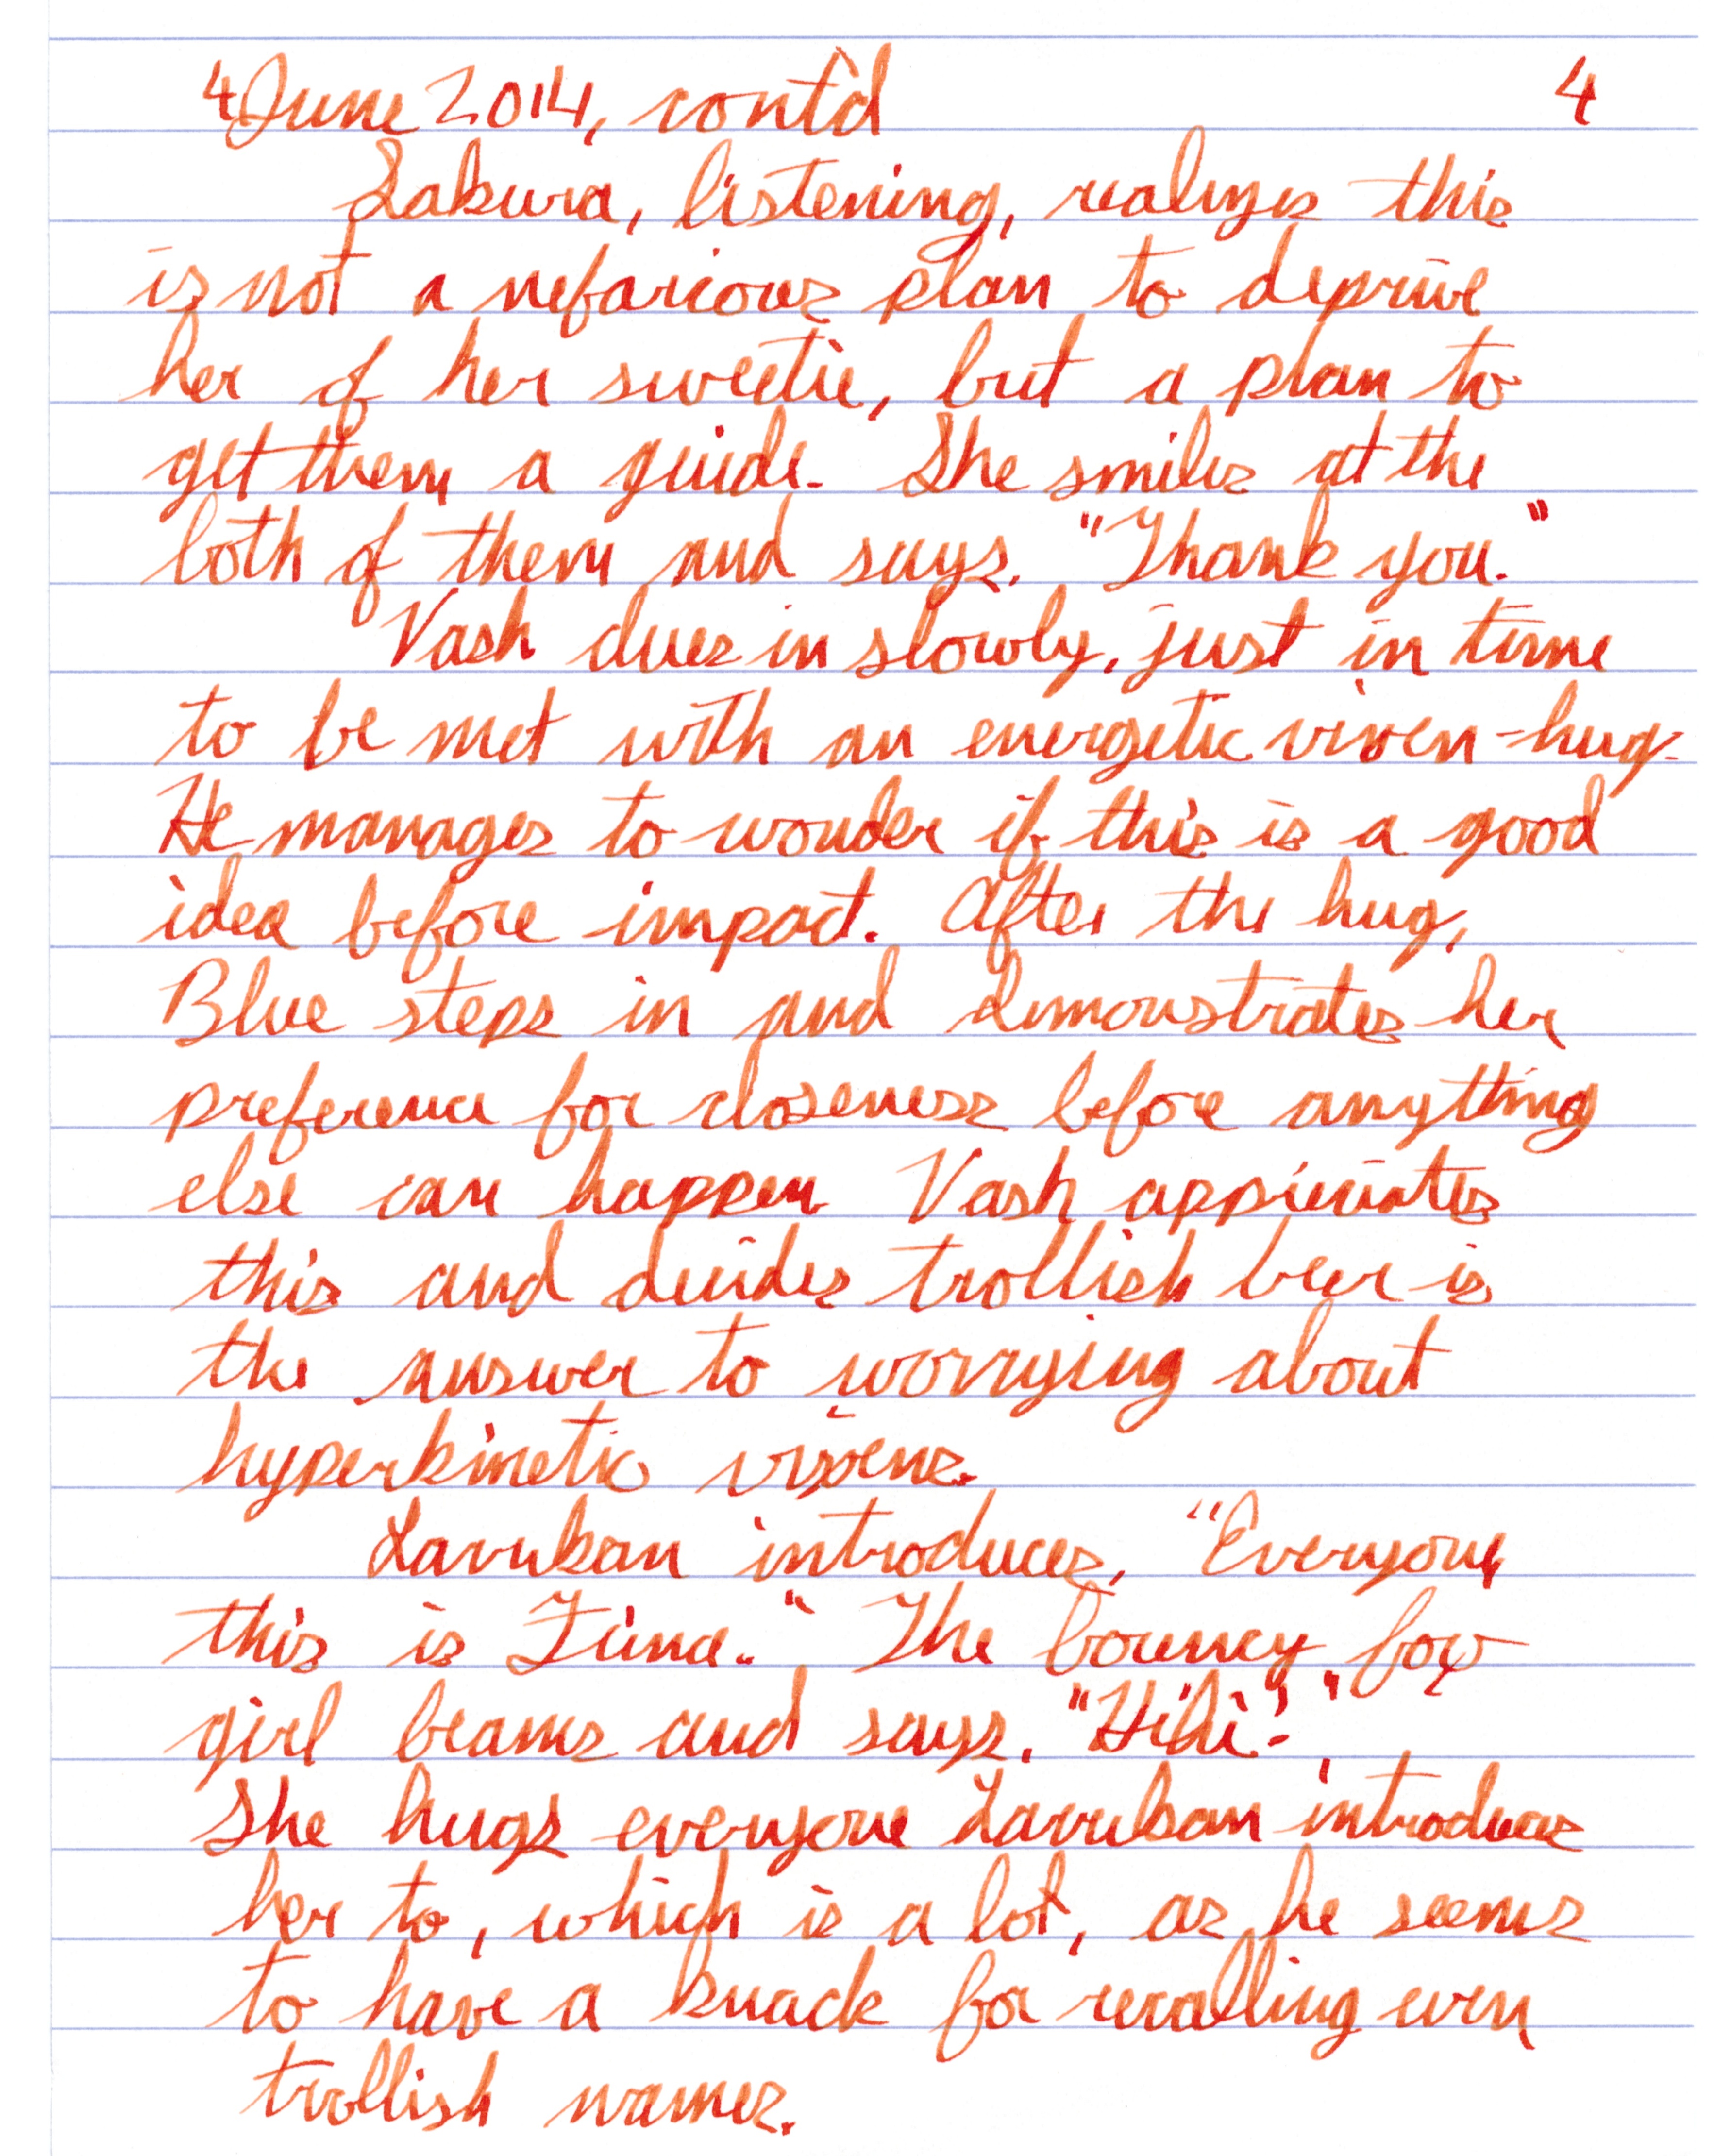 4 June 2014, cont'd 4
Sakura, listening, realizes this
is not a nefarious plan to deprive
her of her sweetie, but a plan to
get them a guide. She smiles at the
both of them and says, "Thank you."
Vash dives in slowly, just in time
to be met with an energetic vixen-hug.
He manages to wonder if this is a good
idea before impact. After the hug,
Blue steps in and demonstrates her
preference for closeness before anything
else can happen. Vash appreciates
this and decides trollish beer is
the answer to worrying about
hyperkinetic vixens.
Lavukan introduces, "Everyone,
this is Tuna." The bouncy fox
girl beams and says, "Hihi!"
She hugs everyone Lavukan introduces
her to, which is a lot, as he seems
to have a knack for recalling even
trollish names.